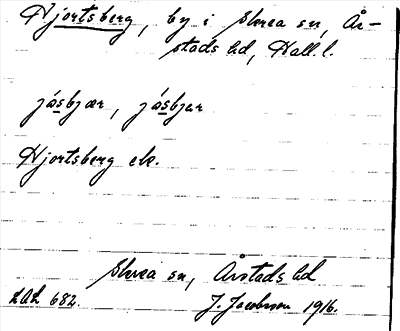 Hjortsberg, by i Skrea sn, År-
stads hd, Hall. l.
jásbjær, jásbjær
Hjortsberg ek.
Skrea sn, Årstads hd
LAL 682. J. Jacobsson 1916.